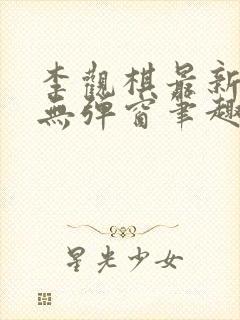 李觀棋最新
無彈窗筆趣
星光少女